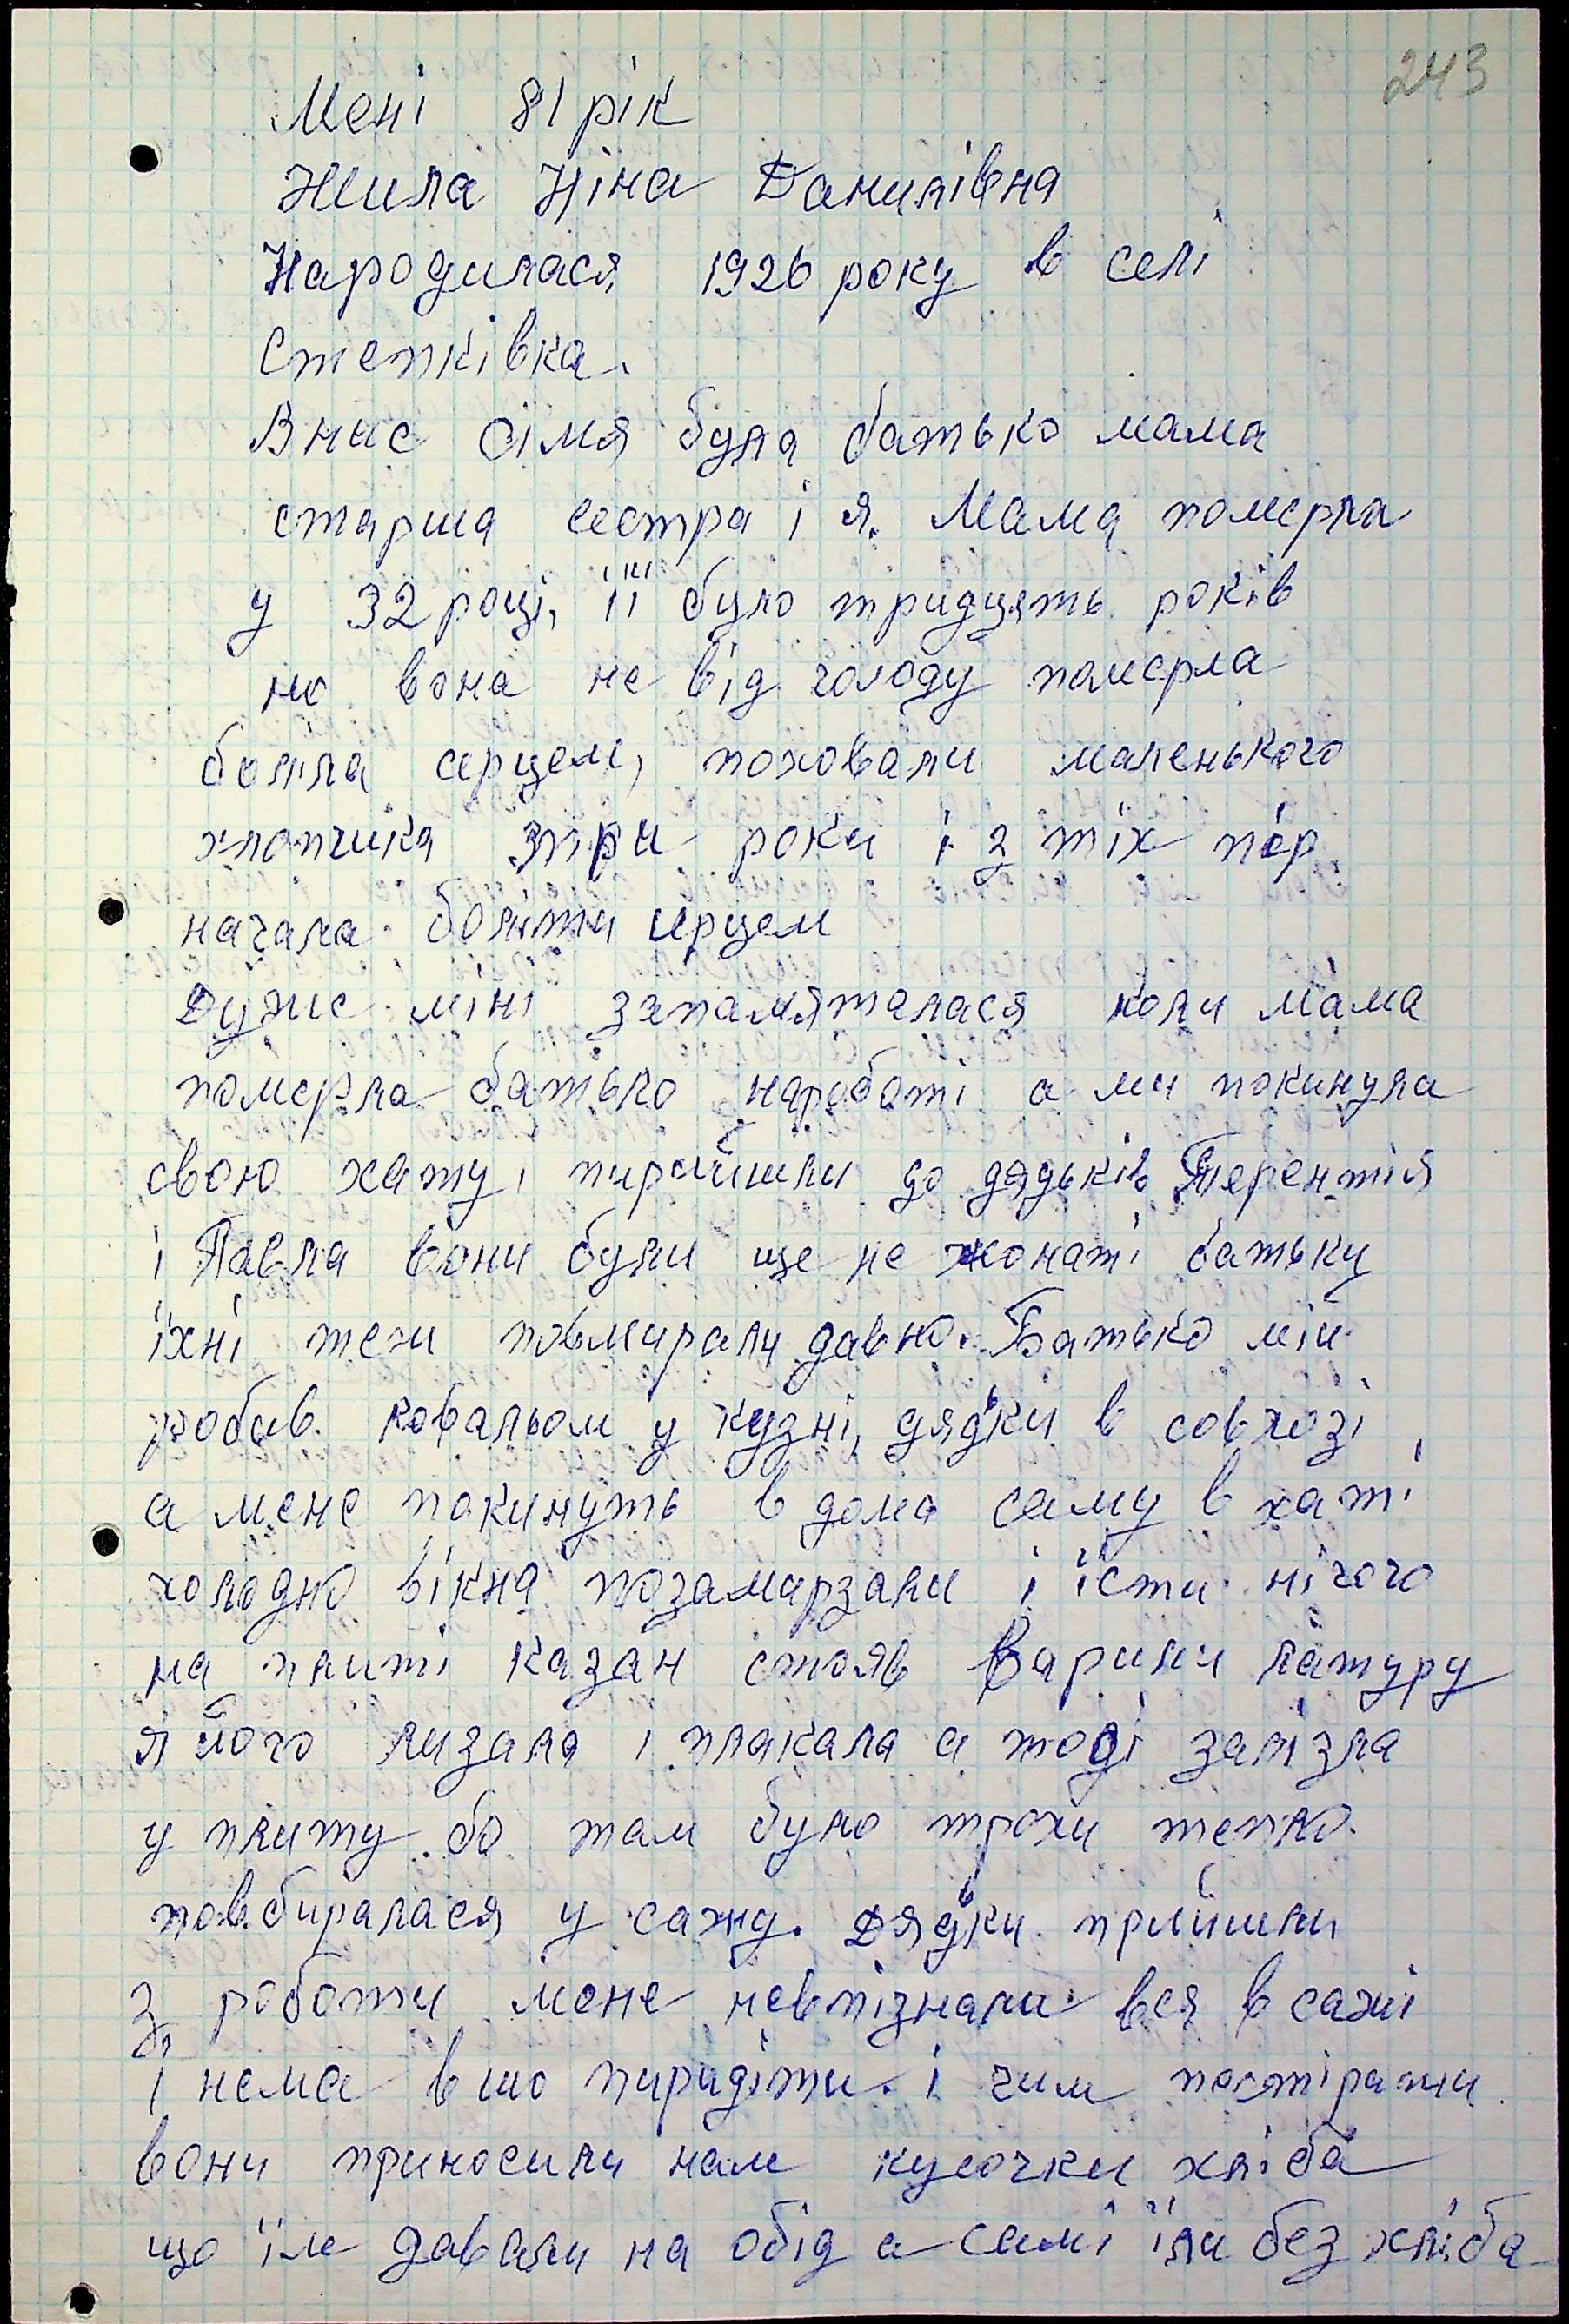 243
Мені 81 рік
Жила Ніна Данилівна
Народилася 1926 року в селі
Степківка.
Внас сімя була батько мама
старша сестра і я. Мама померла
у 32 році, її було тридцять років
но вона не від голоду померла
боліла серцем, поховали маленького
хлопчика три роки і з тіх пор
начала боліти серцем
Дуже міні запамяталася коли мама
померла батько наработі а ми покинула
свою хату, пирийшли до дядьків Терентія
і Павла вони були ще не жонаті батьки
їхні теж повмирали давно. Батько мій
робив ковальом у кузні, дядьки в совхозі,
а мене покинуть в дома саму в хаті
холодно вікна позамирзали і їсти нічого
на плиті казан стояв варили латуру
я його лизала і плакала а тоді залізла
у плиту бо там було трохи тепло.
повбиралася у сажу. Дядьки прийшли
з роботи мене невпізнали вся в сажі
і нема вшо пиридіти і чим постірати
вони приносили нам кусочки хліба
що їм давали на обід а самі їли без хліба